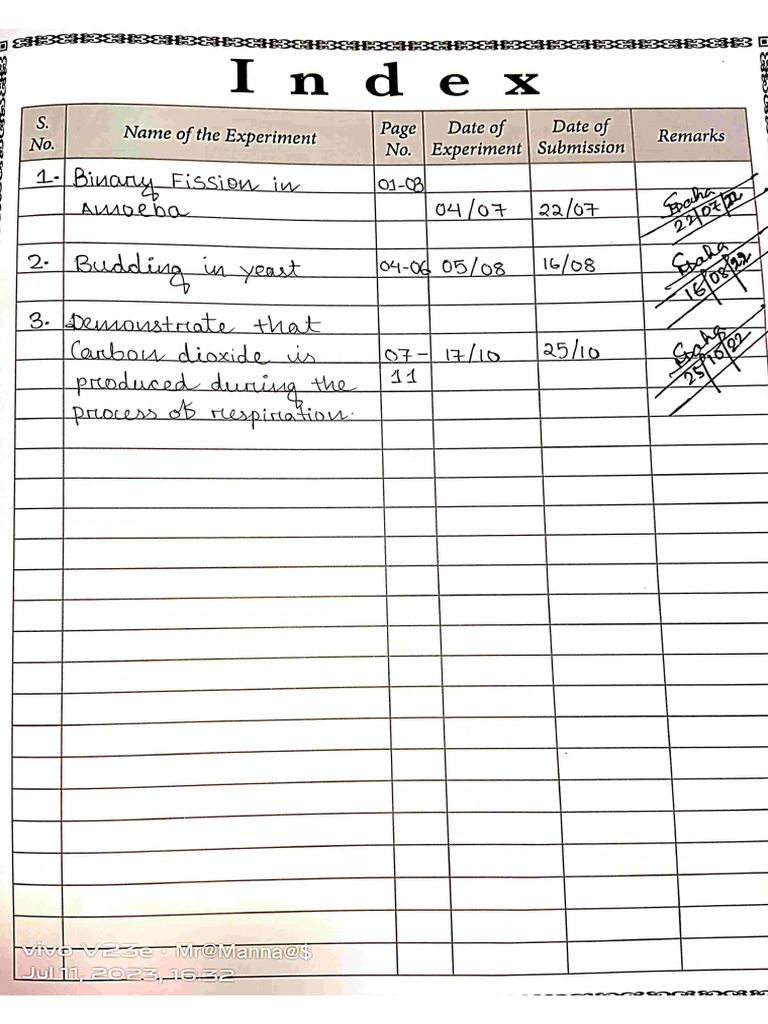 Index
S. No.
Name of the Experiment
Page No.
Date of Experiment
Date of Submission
Remarks
1. Binary Fission in 01-03
Amoeba 04/07 22/07 22/07/22
2. Budding in yeast 04-06 05/08 16/08 16/08/22
3. Demonstrate that
Carbon dioxide is 07- 17/10 25/10 25/10/22
produced during the 11
process of respiration.
vivo V23e · Mr@Manna@$
Jul 11, 2023, 16:32